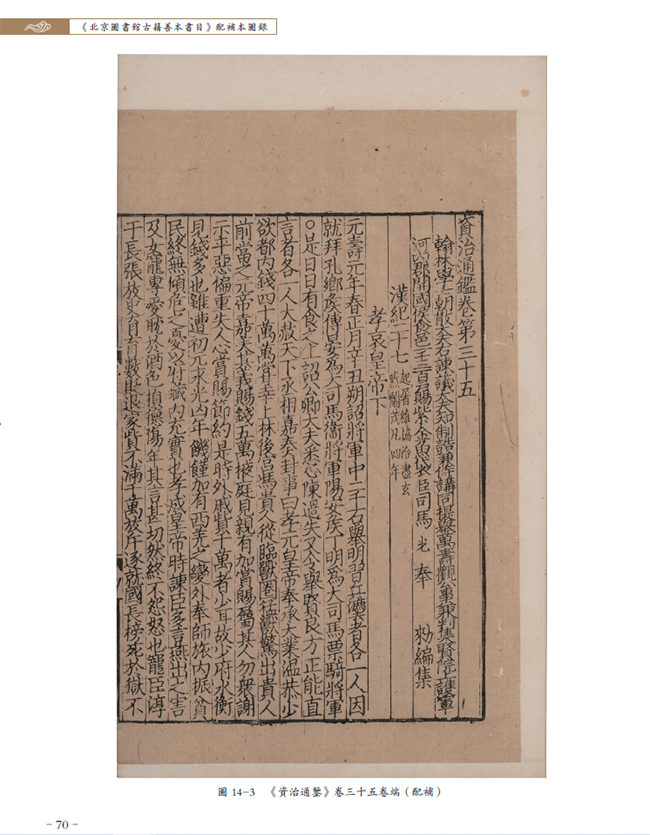 《北京圖書館古籍善本書目》配補本圖錄
資治通鑑卷第三十五
翰林學士朝散大夫右諫議大夫知制誥兼侍講同提舉萬壽觀公事兼判集賢院上護軍
河內郡開國侯食邑一千三百戶賜紫金魚袋臣司馬光奉 勑編集
漢紀二十七 起屠維協洽盡玄黓閹茂凡四年
孝哀皇帝下
元壽元年春正月辛丑朔詔將軍中二千石舉明習兵灋者各一人因
就拜孔鄉侯傅晏爲大司馬衛將軍陽安侯丁明爲大司馬票騎將軍
○是日日有食之上詔公卿大夫悉心陳過失又令舉賢良方正能直
言者各一人大赦天下丞相嘉奏封事曰孝元皇帝奉承大業温恭少
欲都內錢四十萬萬嘗幸上林後宮馮貴人從臨獸圈猛獸驚出貴人
前當之元帝嘉美其義賜錢五萬掖庭見親有加賞賜屬其人勿衆謝
示平惡偏重失人心賞賜節約是時外戚貲千萬者少耳故少府水衡
見錢多也雖遭初元永光凶年饑饉加有西羌之變外奉師旅內振貧
民終無傾危之憂以府藏內充實也孝成皇帝時諫臣多言燕出之害
及女寵專愛耽於酒色損德傷年其言甚切然終不怨怒也寵臣淳
于長張放史育育數貶退家貲不滿千萬放斥逐就國長榜死於獄不
圖 14-3 《資治通鑒》卷三十五卷端（配補）
- 70 -